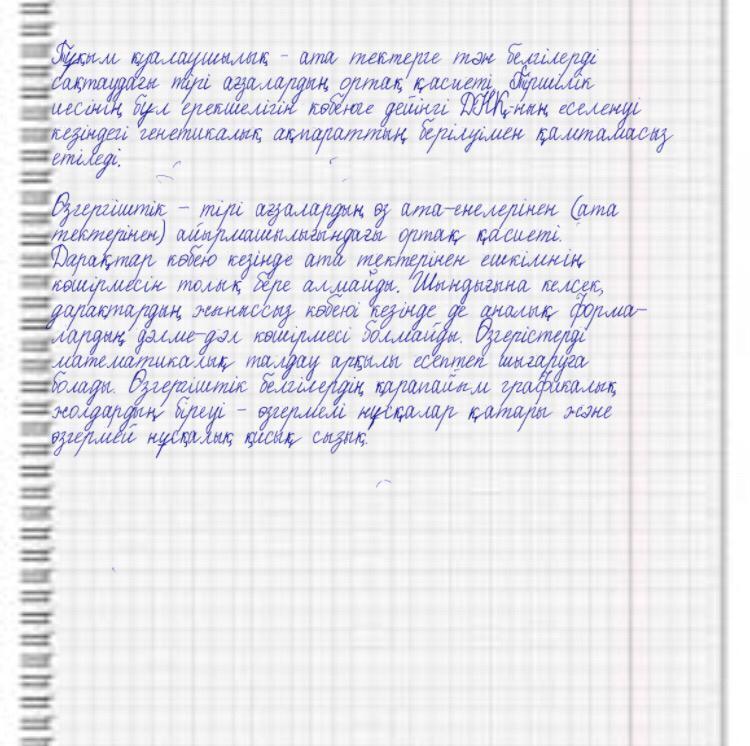 Тұқым қуалаушылық – ата тектерге тән белгілерді
сақтаудағы тірі ағзалардың ортақ қасиеті. Тіршілік
иесінің бұл ерекшелігін көбеюге дейінгі ДНҚ-ның еселенуі
кезіндегі генетикалық ақпараттың берілуімен қамтамасыз
етіледі.
Өзгергіштік – тірі ағзалардың өз ата-енелерінен (ата
тектерінен) айырмашылығындағы ортақ қасиеті.
Дарақтар көбею кезінде ата тектерінен ешкімнің
көшірмесін толық бере алмайды. Шындығына келсек,
дарақтардың жыныссыз көбеюі кезінде де аналық форма-
лардың дәлме-дәл көшірмесі болмайды. Өзгерістерді
математикалық талдау арқылы есептеп шығаруға
болады. Өзгергіштік белгілердің қарапайым графикалық
жолдардың біреуі – өзгермелі нұсқалар қатары және
өзгермей нұсқалық қисық сызық.